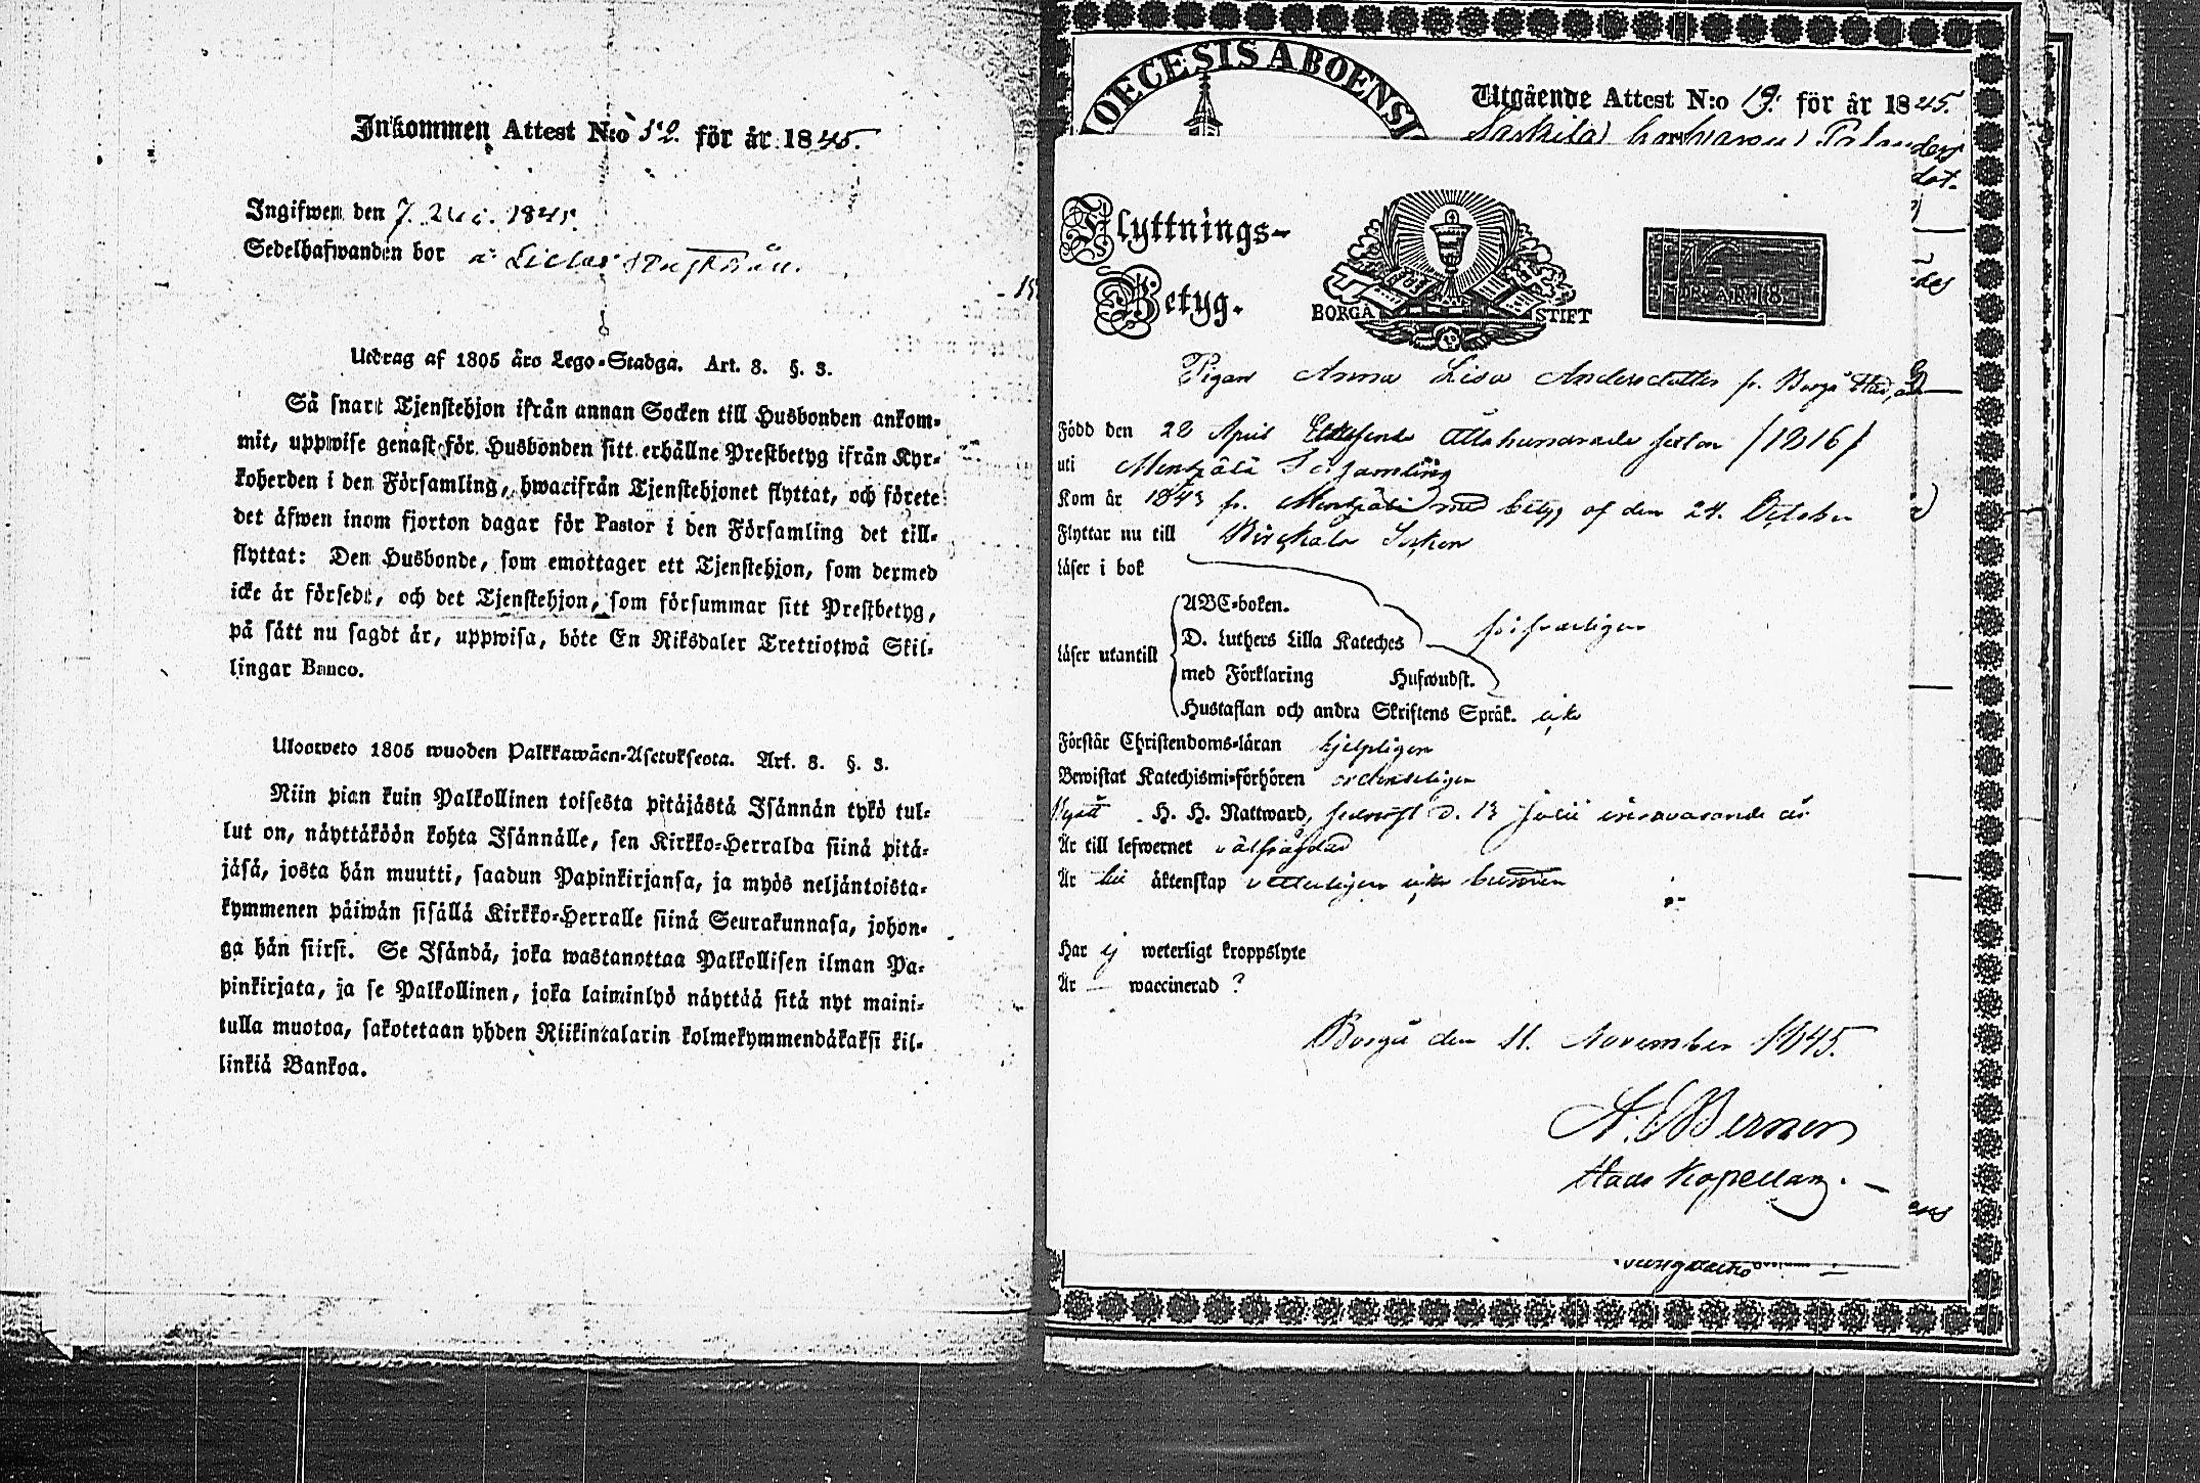 Inkommen Attest N:o 52. för år 1845.
Ingifwen den 7. 1845.
Sedelhafwanden bor å
Utdrag af 1805 års Lego-Stadga. Art. 3. §. 3.
Så snart Tjenstehjon ifrån annan Socken till Husbonden ankom-
mit, uppwise genast för Husbonden sitt erhållne Prestbetyg ifrån Kyr-
koherden i den Församling, hwarifrån Tjenstehjonet flyttat, och förete
det äfwen inom fjorton dagar för Pastor i den Församling det till-
flyttat: Den Husbonde, som emottager ett Tjenstehjon, som dermed
icke är försedt, och det Tjenstehjon, som försummar sitt Prestbetyg,
på sätt nu sagdt är, uppwisa, böte En Riksdaler Trettiotwå Skil-
lingar Banco.
Ulosweto 1805 wuoden Palkkawäen-Asetuksesta. Art. 3. §. 3.
Niin pian kuin Palkollinen toisesta pitäjästä Isännän tykö tul-
lut on, näyttäköön kohta Isännälle, sen Kirkko-Herralda siinä pitä-
jäsä, josta hän muutti, saadun Papinkirjansa, ja myös neljäntoista-
kymmenen päiwän sisällä Kirkko-Herralle siinä Seurakunnasa, johon-
ga hän siirsi. Se Isändä, joka wastanottaa Palkollisen ilman Pa-
pinkirjata, ja se Palkollinen, joka laiminlyö näyttää sitä nyt maini-
tulla muotoa, sakotetaan yhden Riikintalarin kolmekymmendäkaksi kil-
linkiä Bankoa.
DIOECESIS ABOENSI
Utgående Attest N:o 19. för år 1845.
Flyttnings-
Betyg.
BORGÅ STIFT
Pigan Anna Lisa Andersdotter fr. Borgå Stad,
Född den 28 April Ettusende Åttahundrade sexton /1816/
uti Mentzälä Församling
Kom år 1843 fr. Mentzälä med betyg af den 24. October
Flyttar nu till Birckala Socken
Läser i bok
ABC-boken.
D. Luthers Lilla Kateches
Läser utantill
med Förklaring Hufwudst.
försvarligen
Hustaflan och andra Skriftens Språk. icke
Förstår Christendoms-läran hjelpligen
Bewistat Katechismi-förhören ordenteligen
Nytt H. H. Nattward, sednast d. 13 Julii innevarande år
Är till lefwernet välfrägdad
Är till äktenskap vetterligen icke bunden
Har ej weterligt kroppslyte
Är — waccinerad ?
Borgå den 11. November 1845.
Stads Kapellan.